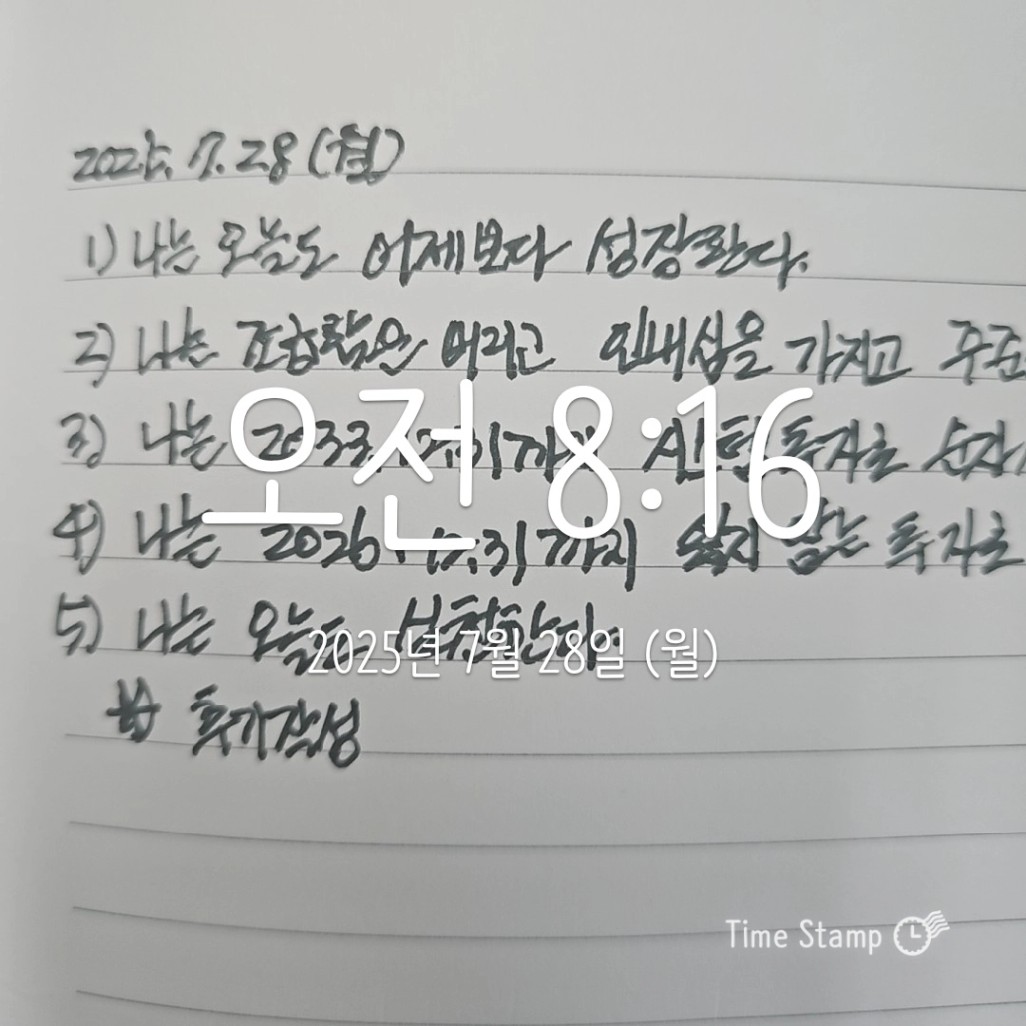 2025. 7. 28 (월)
1) 나는 오늘도 어제보다 성장한다.
2) 나는 조급함은 버리고 인내심을 가지고
3) 나는 2033.12.31까지 투자로
오전 8:16
4) 나는 2026.12.31까지 잃지 않는 투자로
5) 나는 오늘도
2025년 7월 28일 (월)
추가작성
Time Stamp